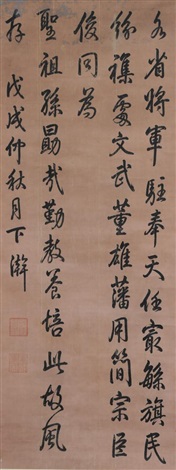 各省將軍駐奉天任㝡緐旗民
紛襍處文武董雄藩用簡宗臣
俊同為
聖祖孫勗哉勤教養培此故風
存 戊戌仲秋月下澣